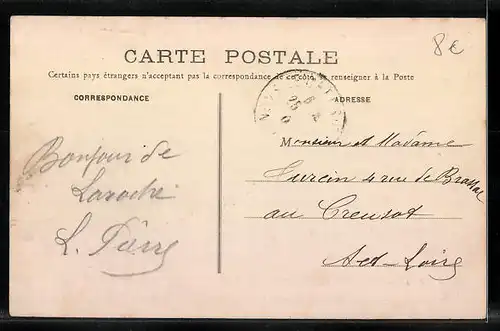 8€
CARTE POSTALE
Certains pays étrangers n'acceptant pas la correspondance de ce côté, se renseigner à la Poste
CORRESPONDANCE
ADRESSE
Monsieur et Madame
4 rue de
au Creusot
Bonjour de
Laroche
L.